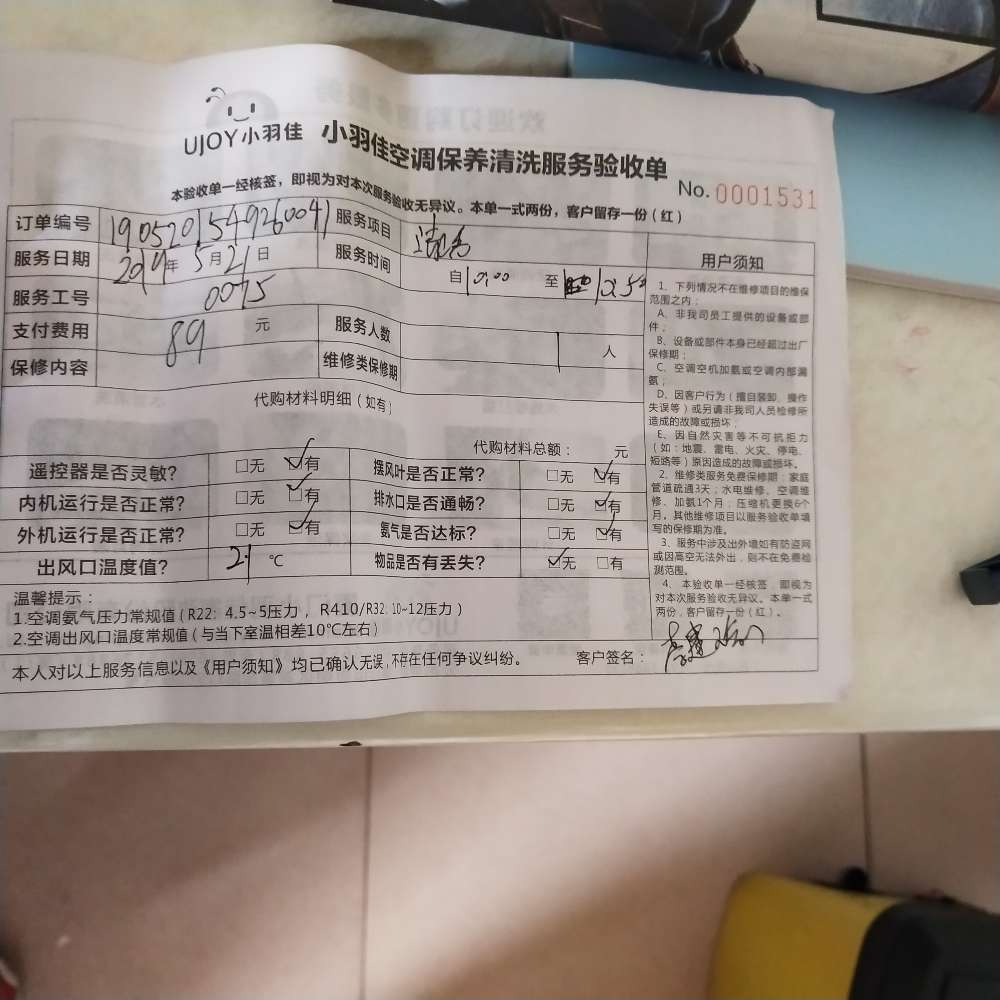 UJOY小羽佳 小羽佳空调保养清洗服务验收单
No. 0001531
本验收单一经核签，即视为对本次服务验收无异议。本单一式两份，客户留存一份（红）
订单编号 1905201549260041 服务项目
服务日期 2019年 5月21日 服务时间 自10:00 至 10:50
服务工号 0075
支付费用 89 元 服务人数 1 人
保修内容 维修类保修期
代购材料明细（如有）
代购材料总额： 元
遥控器是否灵敏? □无 ☑有 摆风叶是否正常? □无 ☑有
内机运行是否正常? □无 ☑有 排水口是否通畅? □无 ☑有
外机运行是否正常? □无 ☑有 氨气是否达标? □无 ☑有
出风口温度值? ℃ 物品是否有丢失? ☑无 □有
温馨提示：
1.空调氨气压力常规值（R22: 4.5~5压力，R410/R32: 10~12压力）
2.空调出风口温度常规值（与当下室温相差10℃左右）
本人对以上服务信息以及《用户须知》均已确认无误，不存在任何争议纠纷。 客户签名：
用户须知
1、下列情况不在维修项目的维保
范围之内：
A、非我司员工提供的设备或部
件；
B、设备或部件本身已经超过出厂
保修期；
C、空调空机加氨或空调内部漏
氨；
D、因客户行为（擅自装卸、操作
失误等）或另请非我司人员检修所
造成的故障或损坏；
E、因自然灾害等不可抗拒力
（如：地震、雷电、火灾、停电、
短路等）原因造成的故障或损坏。
2、维修类服务免费保修期：家庭
管道疏通3天；水电维修、空调维
修、加氨1个月；压缩机更换6个
月。其他维修项目以服务验收单填
写的保修期为准。
3、服务中涉及出外墙如有防盗网
或因高空无法外出，则不在免费检
测范围。
4、本验收单一经核签，即视为
对本次服务验收无异议。本单一式
两份，客户留存一份（红）。